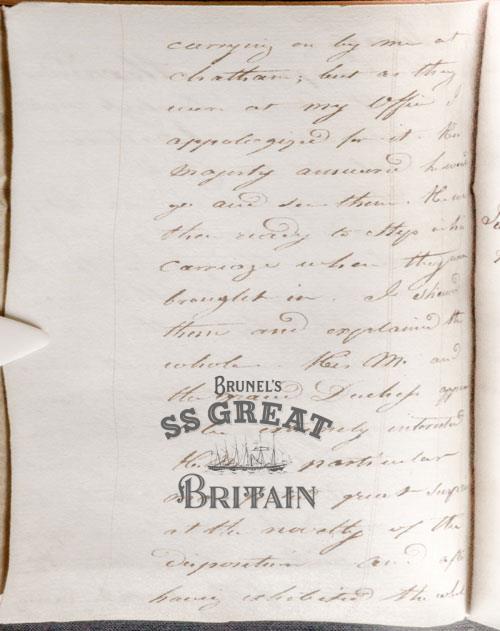 carrying on by me at
Chatham; but as they
were at my Office I
appologized for it. His
Majesty answered he would
go and see them. He was
then ready to step in his
carriage when they were
brought in. I shewed
them and explained the
whole. His M. and
the Grand Duchess appea
to be intirely interested
He particular
great surp
at the novelty of the
disposition and aft
having exhibited the whol
BRUNEL'S
SS GREAT
BRITAIN